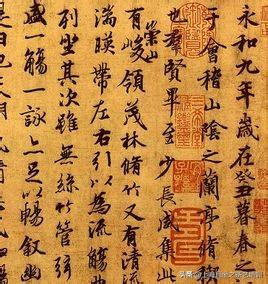 永和九年歲在癸丑暮春之
于會稽山陰之蘭亭脩
也羣賢畢至少長咸集此
有崇山峻領茂林脩竹又有清
湍暎帶左右引以為流觴曲
列坐其次雖無絲竹管弦
盛一觴一詠亦足以暢叙幽